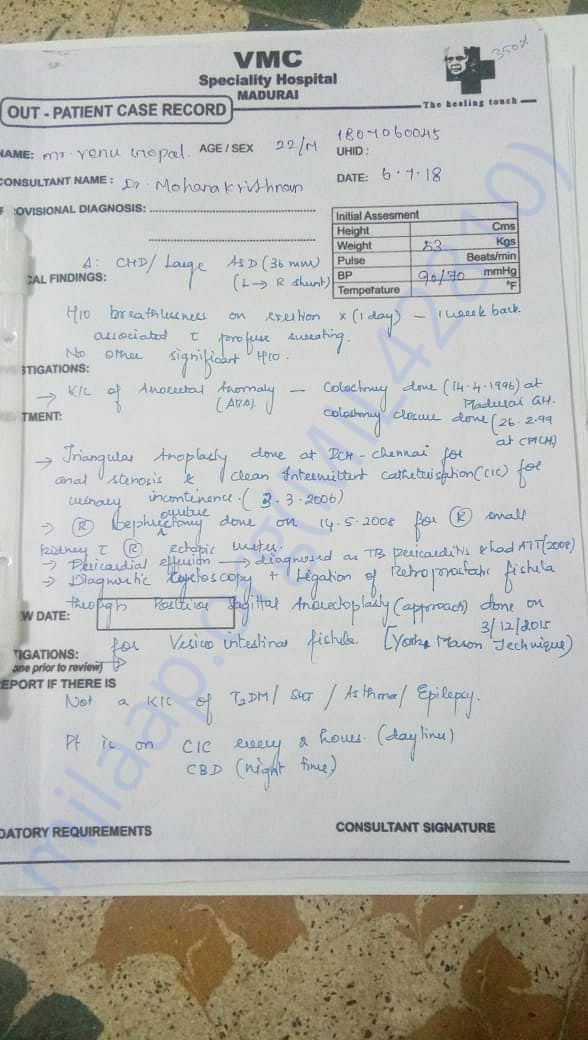 350%
VMC
Speciality Hospital
MADURAI
The healing touch
OUT - PATIENT CASE RECORD
NAME: Mr. Venu Gopal. AGE / SEX 22/M UHID: 1807060045
CONSULTANT NAME: Dr. Moharakrishnan DATE: 6.7.18
OVISIONAL DIAGNOSIS:
Initial Assesment
Height Cms
Weight 53 Kgs
Pulse Beats/min
BP 90/70 mmHg
Temperature °F
Δ: CHD/ Large ASD (36 mm)
CAL FINDINGS: (L→ R shunt)
H/O breathlessness on exertion x (1 day) - 1 week back
associated c profuse sweating.
No other significant H/O.
STIGATIONS:
→ K/C of Anorectal Anomaly - Colostomy done (14.4.1996) at
(ARA). Madurai GH.
TMENT: Colostomy closure done (26.2.99
at CMCH)
→ Triangular Anoplasty done at DCH - Chennai for
anal stenosis & clean Intermittent Catheterisation (CIC) for
urinary incontinence. (3.3.2006)
→ (R) Nephrectomy done on 14.5.2008 for (R) small
kidney c (R) ectopic ureter.
→ Pericardial effusion → diagnosed as TB pericarditis & had ATT (2008)
→ Diagnostic Cystoscopy + Ligation of Retroprostatic fistula
through Sagittal Anorectoplasty (approach) done on
W DATE: 3/12/2015
for Vesico intestinal fistula [York Mason Technique)
TIGATIONS:
one prior to review)
EPORT IF THERE IS
Not a K/C of T2DM/ SHT / Asthma/ Epilepsy.
Pt is on CIC every 2 hours. (day time)
CBD (night time)
DATORY REQUIREMENTS CONSULTANT SIGNATURE
milaap.org(MIL42810)